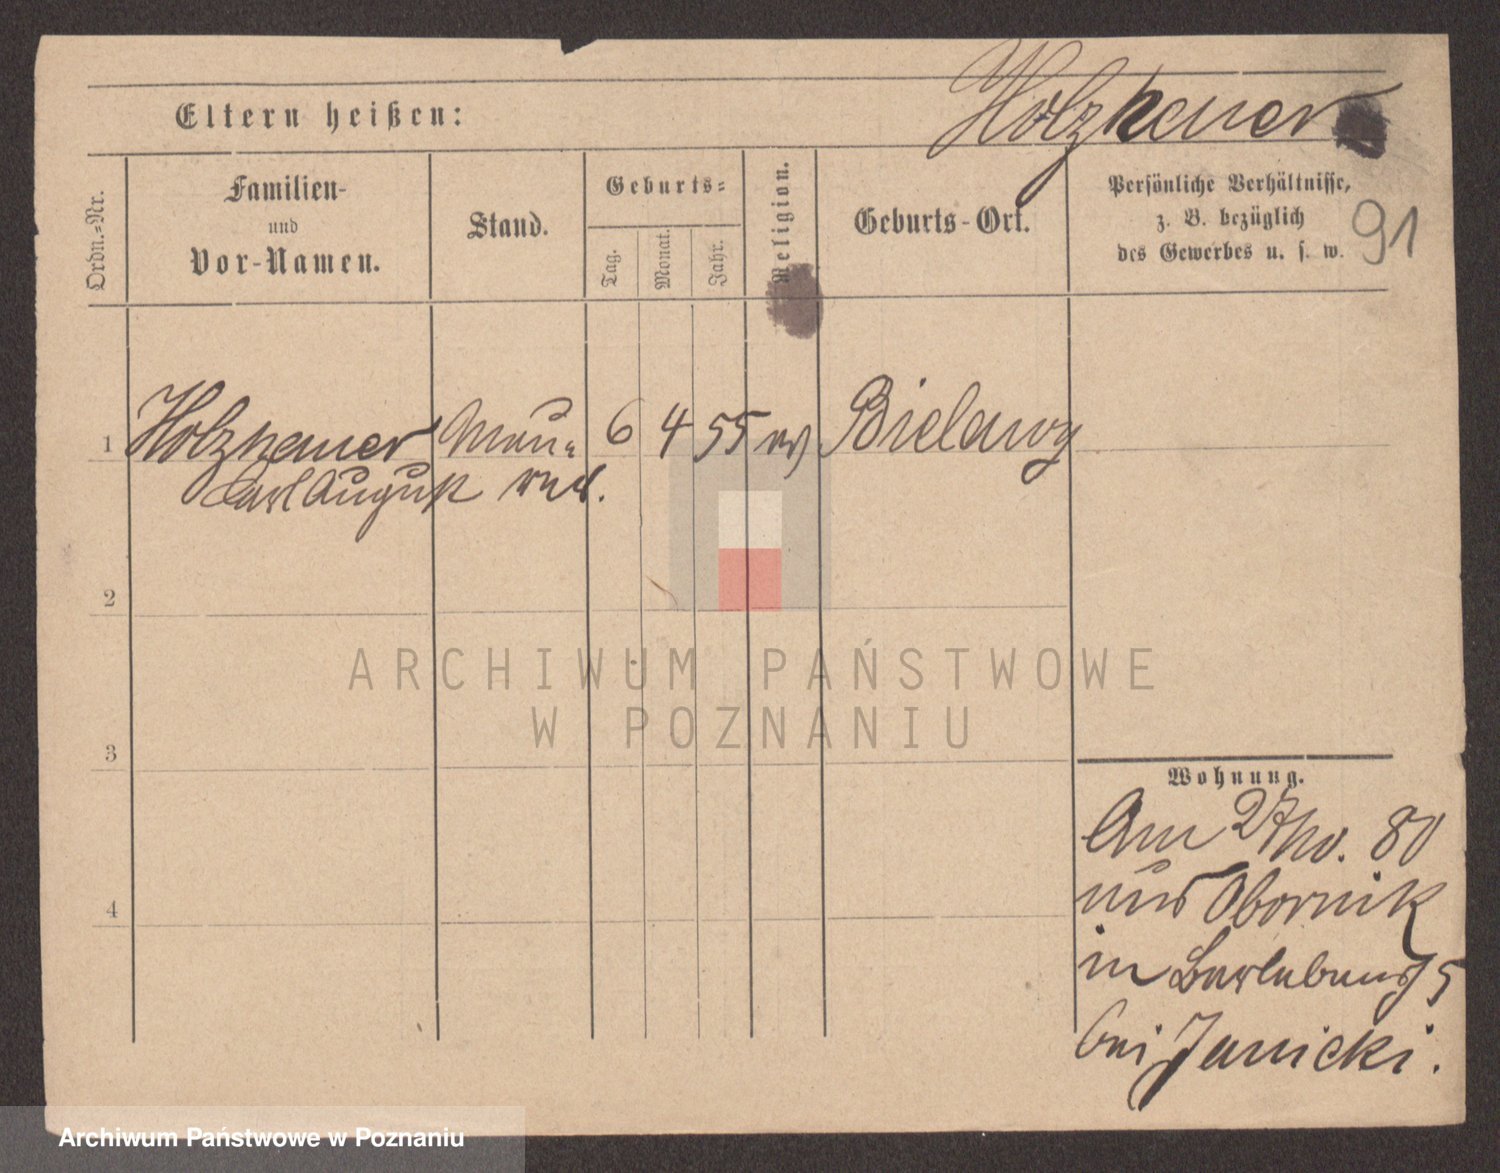 Holzheuer
Eltern heißen:
Ordn.-Nr.
Familien-
und
Vor-Namen.
Stand.
Geburts-
Tag.
Monat.
Jahr.
Religion.
Geburts-Ort.
Persönliche Verhältnisse,
z. B. bezüglich
des Gewerbes u. s. w.
91
1 Holzheuer Mau- 6 4 55 ev Bielawy
Carl August rer.
2
3
4
Wohnung.
Am 27/10. 80
aus Obornik
in 5
bei Janicki.
ARCHIWUM PAŃSTWOWE
W POZNANIU
Archiwum Państwowe w Poznaniu